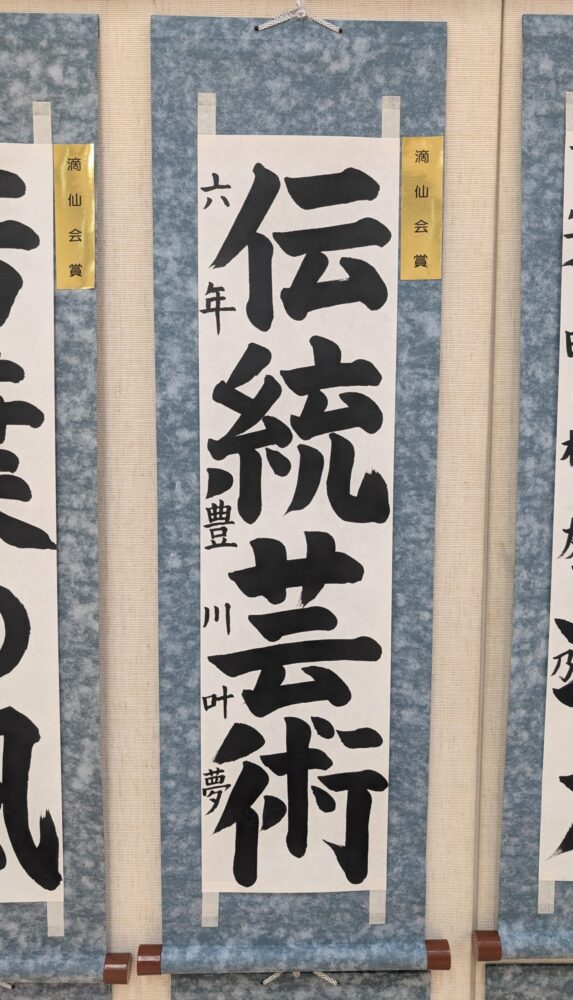 滴仙会賞
伝統芸術
六年 豊川叶夢
滴仙会賞
葉の風